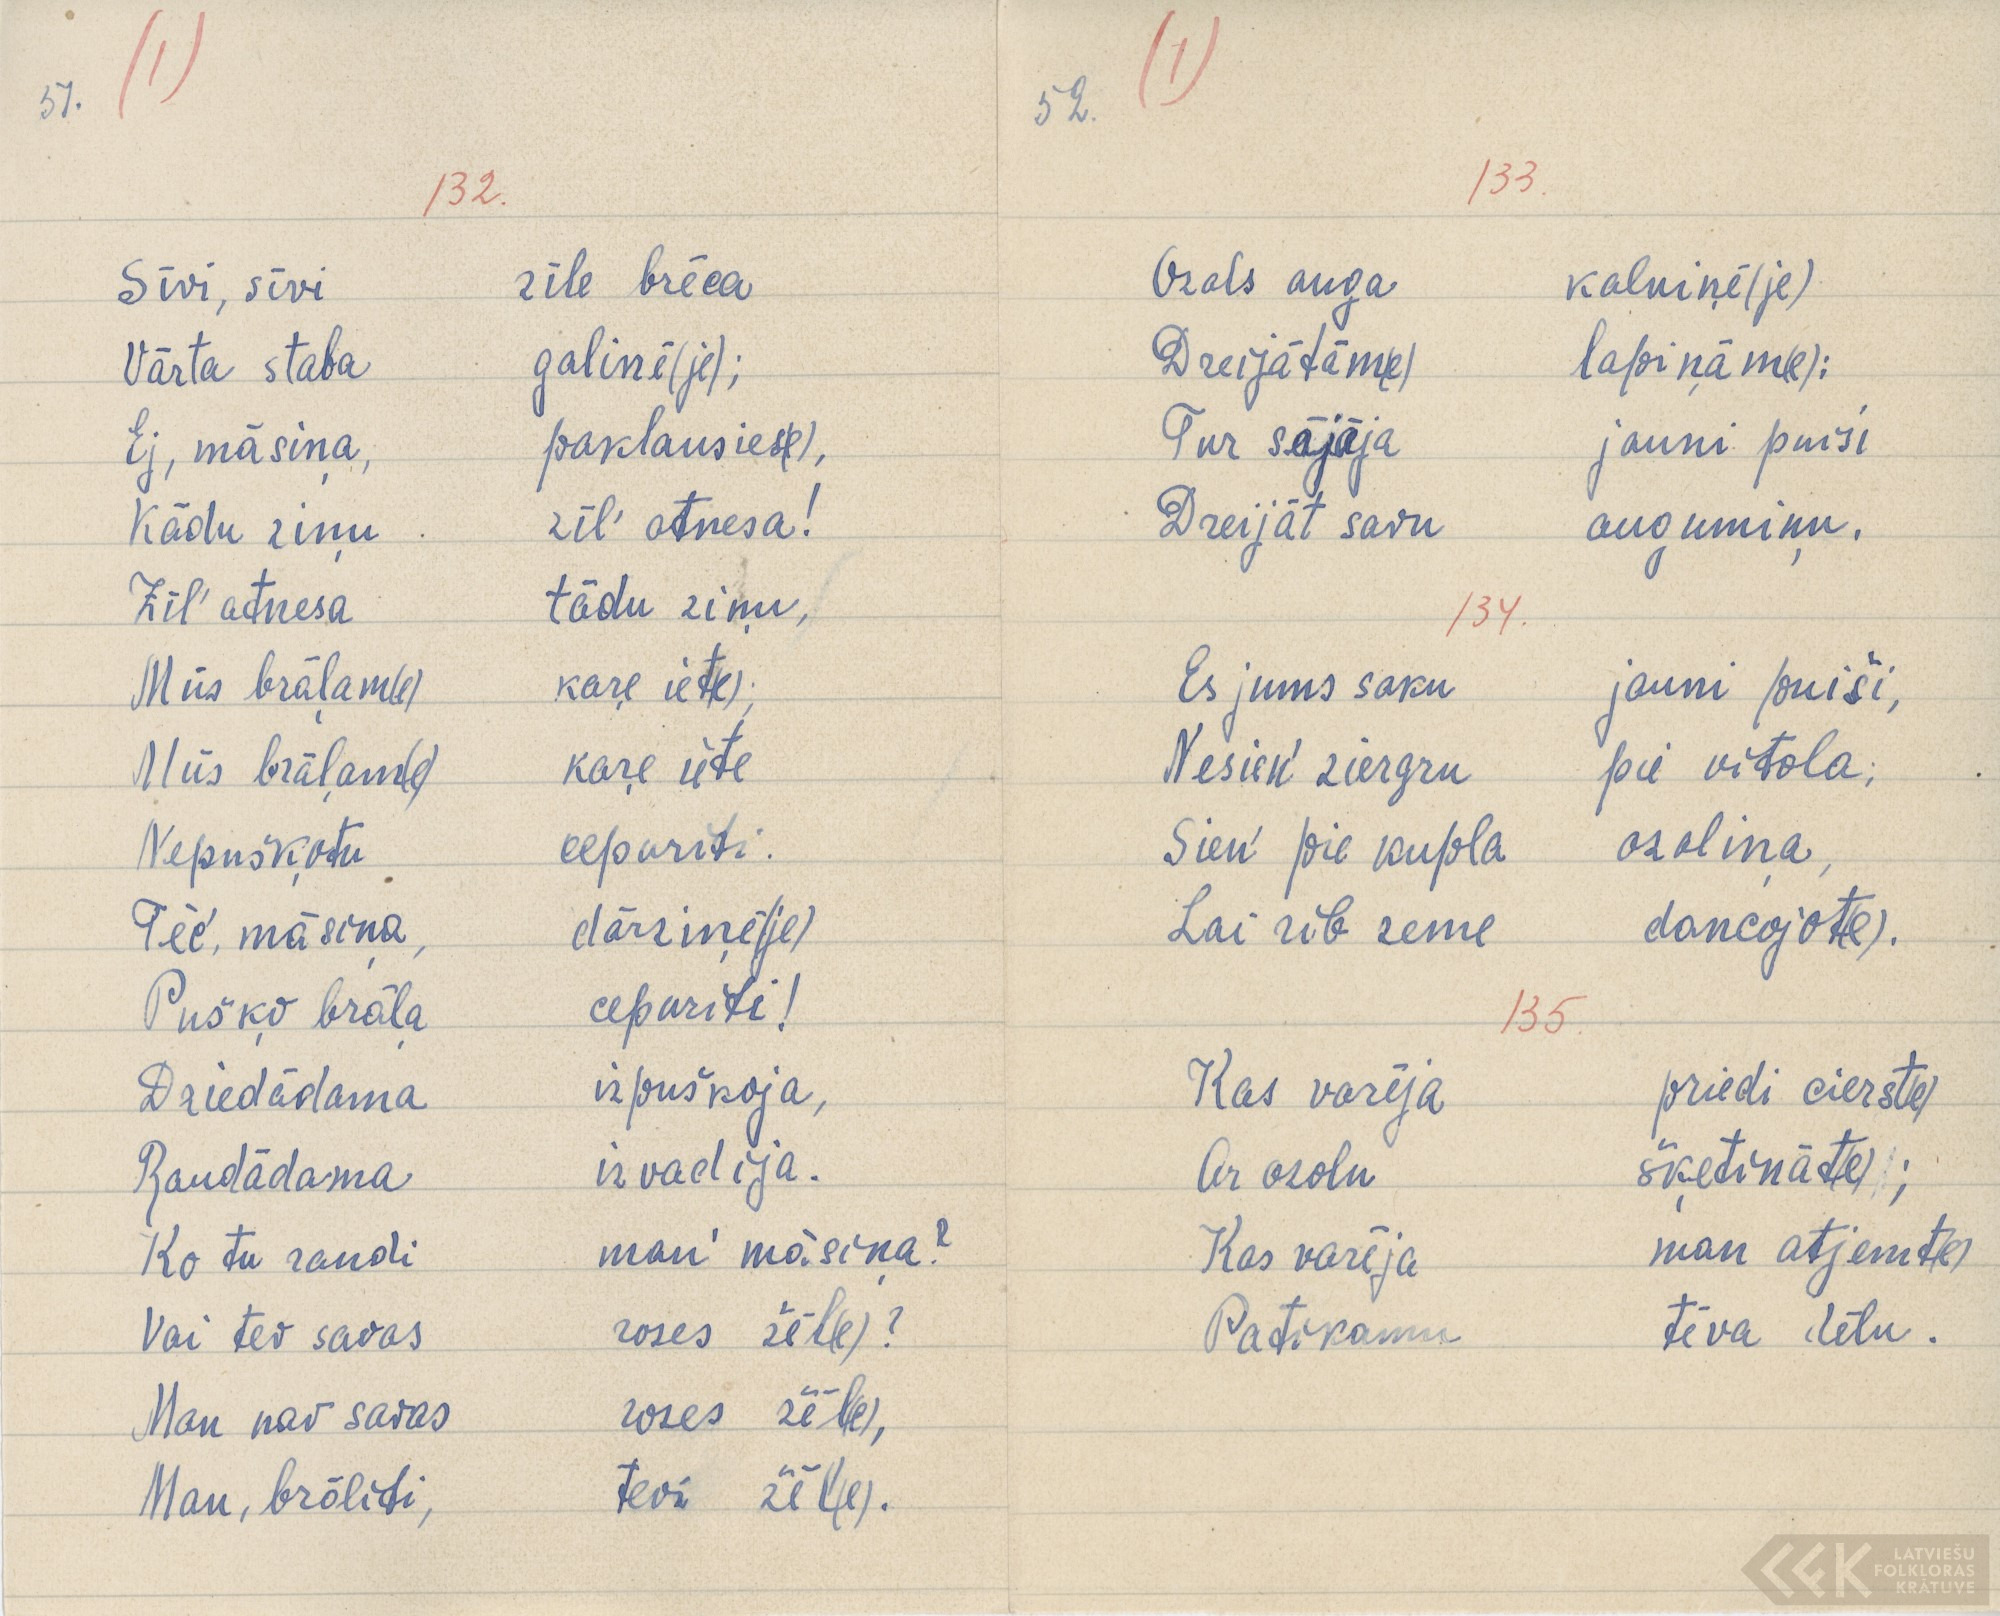 51. (1)
132.
Sīvi, sīvi zīle brēca
Vārta staba galinē(je);
Ej, māsiņa, paklausies(e),
Kādu ziņu zīl' atnesa!
Zīl' atnesa tādu ziņu,
Mūs brāļam(e) kaŗe iet(e);
Mūs brāļam(e) kaŗe iete
Nepušķotu cepuriti.
Teč, māsiņa, dārziņē(je)
Pušķo brāļa cepuriti!
Dziedādama izpuškoja,
Raudādama izvadija.
Ko tu raudi man' māsiņa?
Vai tev savas rozes žēl(e)?
Man nav savas rozes žēl(e),
Man, brāliti, tevi žēl(e).
52. (1)
133.
Ozols auga kalniņē(je)
Dreijātām(e) lapiņām(e);
Tur sājāja jauni puiši
Dreijāt savu augumiņu.
134.
Es jums saku jauni puiši,
Nesien' ziergru pie vitola;
Sien' pie kupla ozoliņa,
Lai rib zeme dancojot(e).
135.
Kas varēja priedi cierst(e)
Ar ozolu šķetināt(e);
Kas varēja man atjemt(e)
Patikamu tēva dēlu.
LATVIEŠU
FOLKLORAS
KRĀTUVE